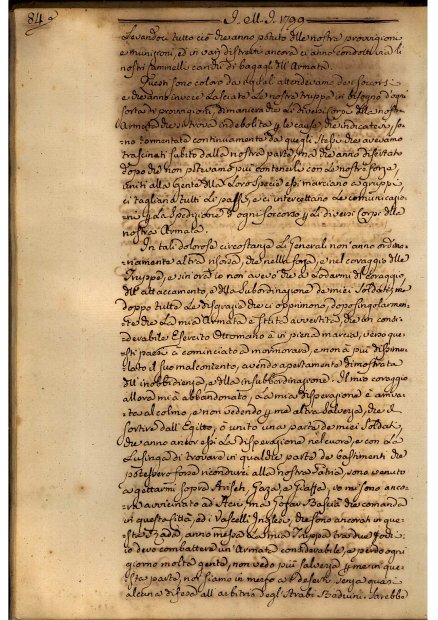 84
J. M. J. 1799
levandoci tutto ciò che anno potuto delle nostre provvigioni
e munizioni, ed in varj distretti ancora ci anno condotti via li
nostri Cammelli carichi di bagagli dell'Armata.
Questi sono coloro da quali attendevamo de' soccorsi
e che anno invece lasciata la nostra truppa in bisogno d'ogni
sorta di provvigioni, di maniera che li diversi corpi della nostra
Armata che si trova indebolita per le cause che indicate, so-
no tormentate continuamente da quegli stessi che avevamo
trascinati subito dalla nostra parte, ma che anno disertato
dopo che non potevamo più contenerli con le nostre forze,
uniti alla Gente della loro specie essi marciano a gruppi,
ci tagliano tutti li passi, e ci intercettano le comunicazio-
ni per la spedizione d'ogni soccorso per li diversi Corpi della
nostra Armata.
In tali dolorose circostanze li Generali non anno ordina-
riamente altra risorsa, che nella forza, e nel coraggio delle
Truppe, e sin ora io non avevo che a lodarmi del coraggio
dell'attaccamento, e della subordinazione de miei Soldati; ma
doppo tutte le disgrazie che ci opprimono, dopo singolarmen-
te che la mia Armata è stata avvertita, che un consi-
derabile Esercito Ottomano è in piena marcia, verso que-
sti paesi à cominciato a mormorare, e non à più dissimu-
lato il suo malcontento, avendo apertamente dimostrata
dell'inobbidienza, e della insubbordinazione. Il mio coraggio
allora mi à abbandonato, la mia disperazione è arriva-
ta al colmo, e non vedendo per me altra salvezza, che il
sortire dall'Egitto, ò unito una parte de miei Soldati,
che anno ancor essi la Disperazione nel cuore, e con la
Lusinga di trovare in qualche parte de bastimenti che
potessero forse ricondurci alla nostra Patria, sono venuto
a gettarmi sopra Ariseh, Gaza, e Giaffa, io mi sono anco-
ra avvicinato ad Acri, ma Gezar Bascià che comanda
in questa Città, ed i Vascelli Inglesi, che sono ancorati in que-
sta Rada, anno messa la mia Truppa tra due fuochi
io devo combattere un'Armata considerabile, e perdo ogni
giorno molta gente, non vedo più salvezza per me in que-
sta parte, noi siamo in mezzo a' deserti senza quasi
alcuna difesa all'arbitrio degl'Arabi Beduini. Sarebbe